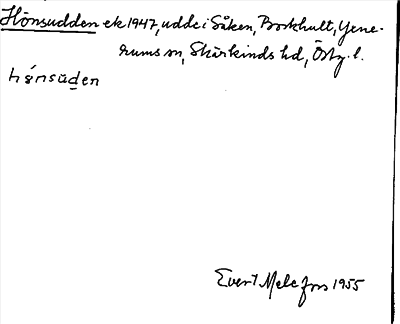 Hönsudden ek 1947, udde i Såken, Borkhult, Yxne-
rums sn, Skärkinds hd, Östg. l.
hǿnsud̲en
Evert Melefors 1955